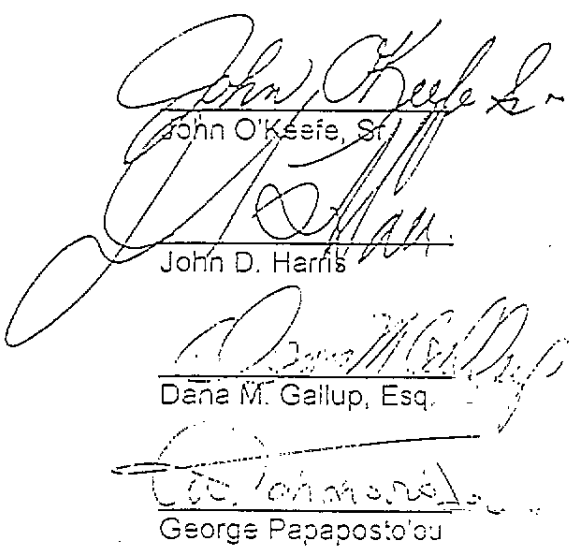 John O'Keefe Sr
John O'Keefe, Sr.
John D. Harris
Dana M. Gallup
Dana M. Gallup, Esq.
George Papaposto'ou